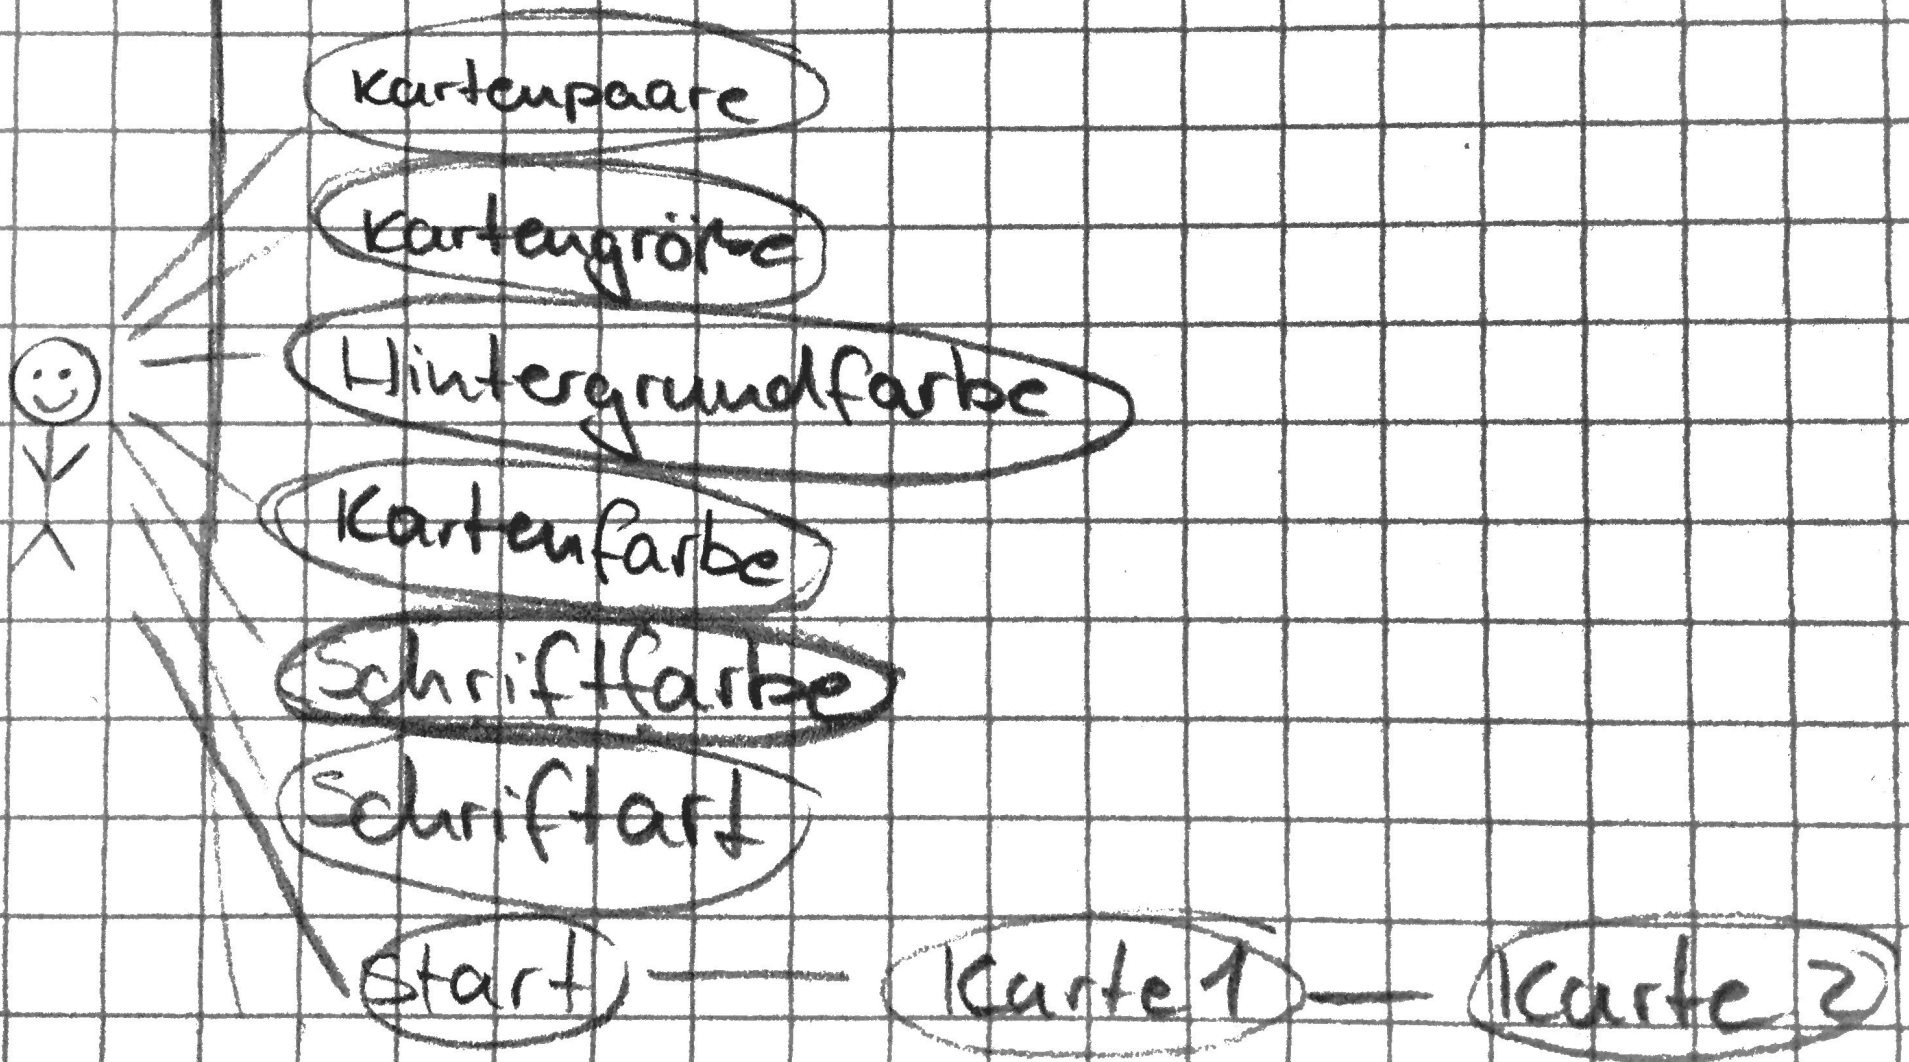 Kartenpaare
Kartengröße
Hintergrundfarbe
Kartenfarbe
Schriftfarbe
Schriftart
Start Karte 1 Karte 2